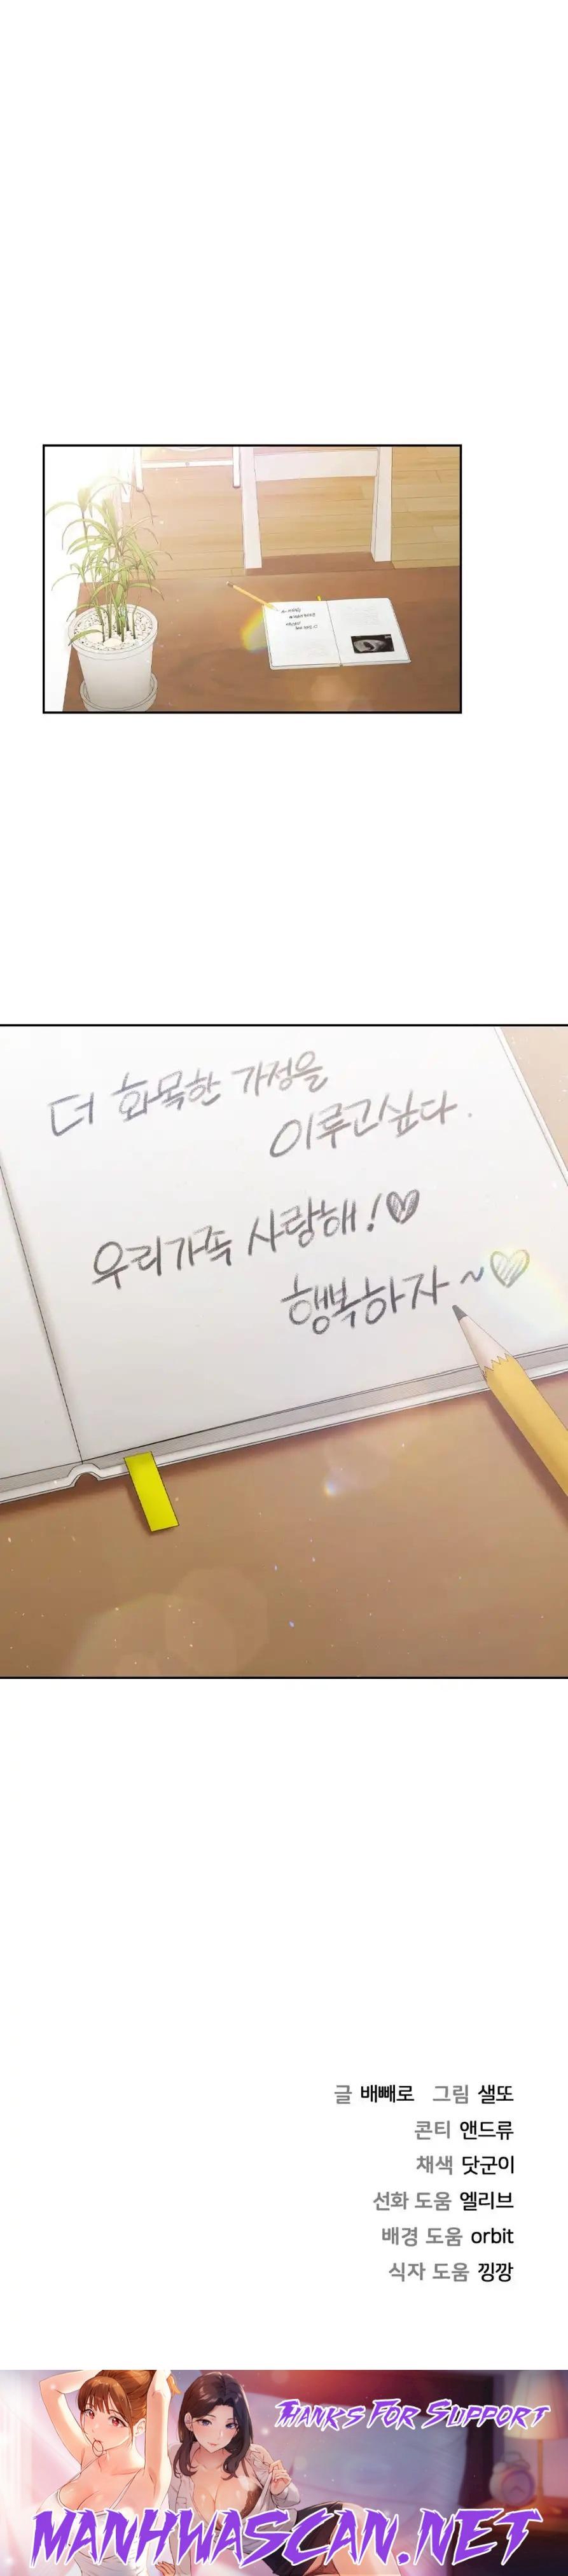 더 화목한 가정을
이루고싶다.
우리가족 사랑해!♡
행복하자~♡
글 배빼로 그림 샐또
콘티 앤드류
채색 닷군이
선화 도움 엘리브
배경 도움 orbit
식자 도움 낑깡
THANKS FOR SUPPORT
MANHWASCAN.NET